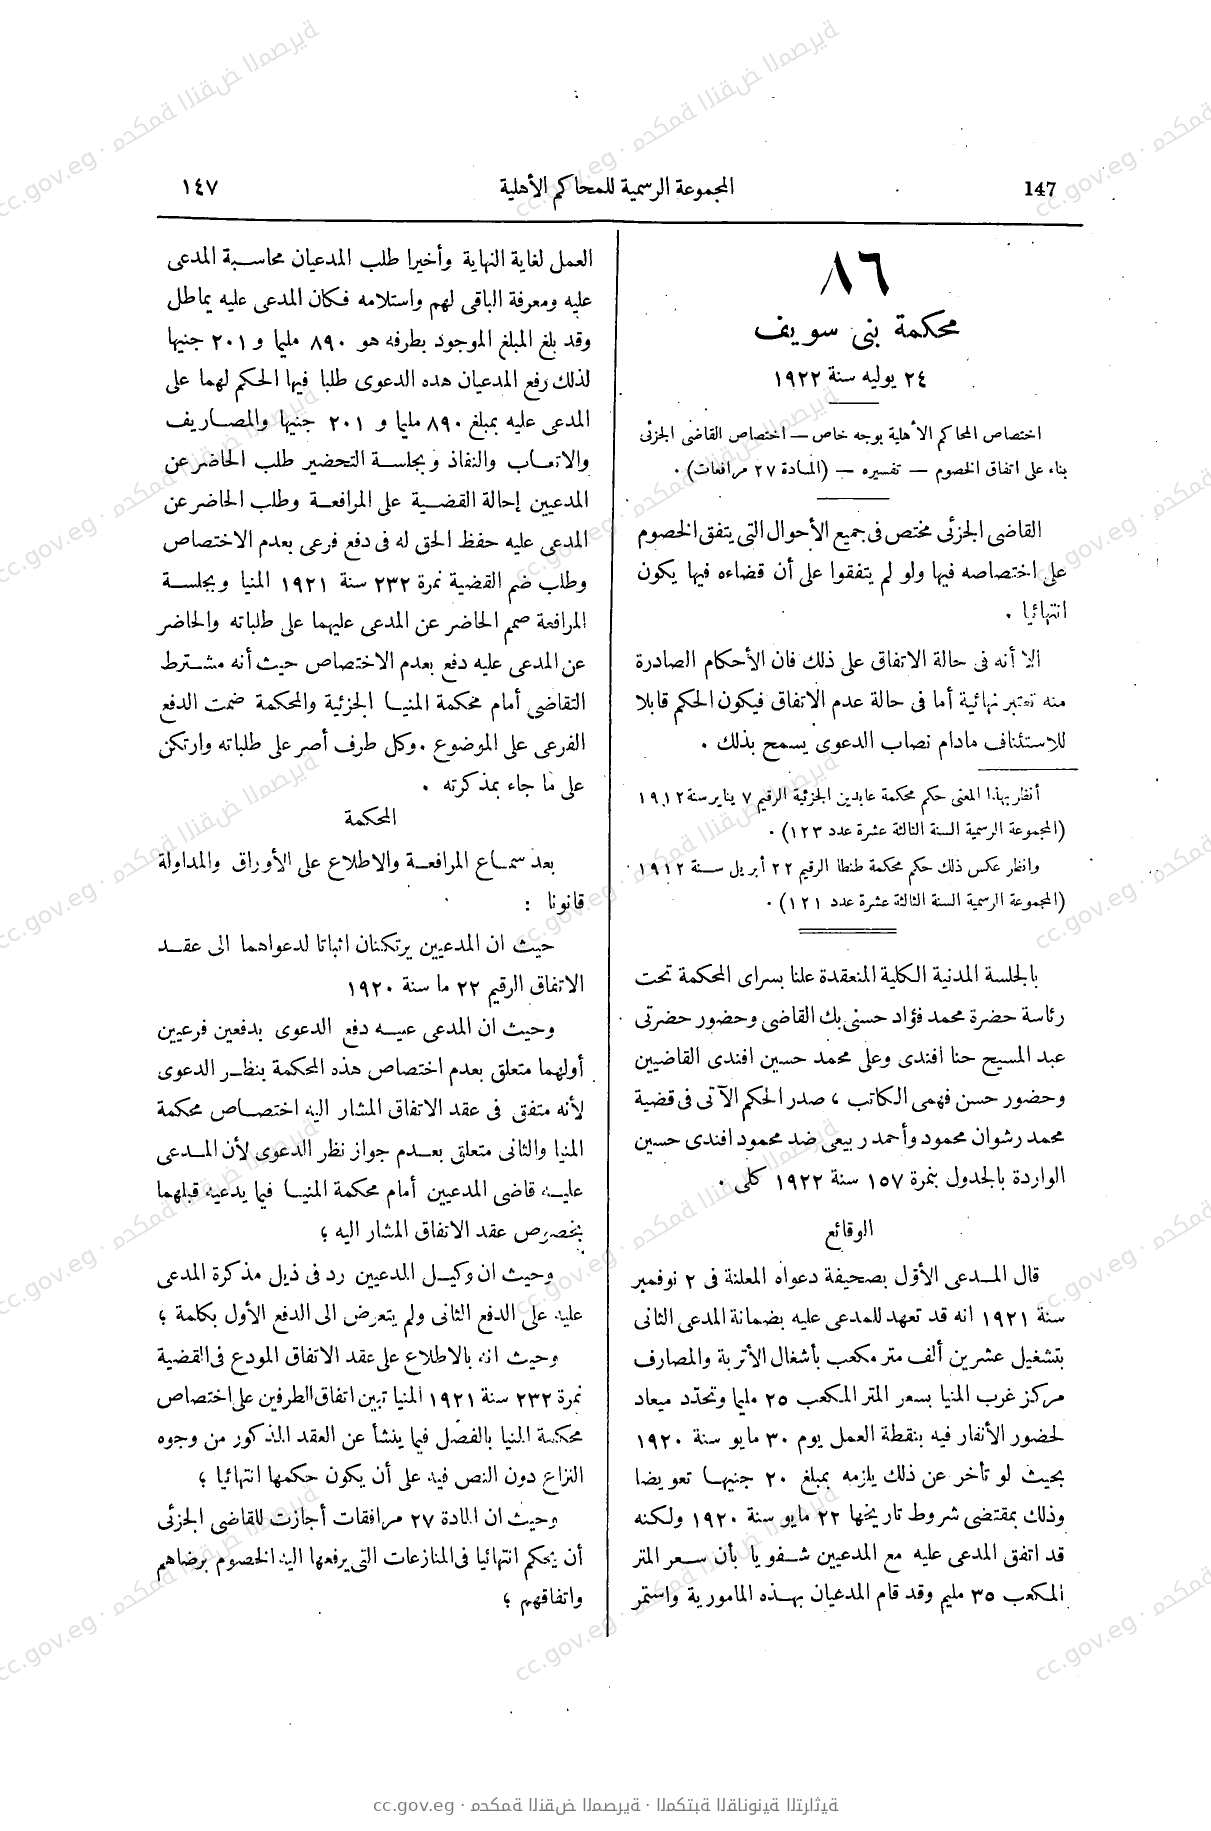 147
المجموعة الرسمية للمحاكم الأهلية
١٤٧
٨٦
محكمة بنى سويف
٢٤ يوليه سنة ١٩٢٢
اختصاص المحاكم الأهلية بوجه خاص — اختصاص القاضى الجزئى
بناء على اتفاق الخصوم — تفسيره — (المادة ٢٧ مرافعات) ٠
القاضى الجزئى مختص فى جميع الأحوال التى يتفق الخصوم
على اختصاصه فيها ولو لم يتفقوا على أن قضاءه فيها يكون
انتهائيا ٠
الا أنه فى حالة الاتفاق على ذلك فان الأحكام الصادرة
منه تعتبر نهائية أما فى حالة عدم الاتفاق فيكون الحكم قابلا
للاستئناف مادام نصاب الدعوى يسمح بذلك ٠
أنظر بهذا المعنى حكم محكمة عابدين الجزئية الرقيم ٧ يناير سنة ١٩١٢
(المجموعة الرسمية السنة الثالثة عشرة عدد ١٢٣) ٠
وانظر عكس ذلك حكم محكمة طنطا الرقيم ٢٢ أبريل سنة ١٩١٢
(المجموعة الرسمية السنة الثالثة عشرة عدد ١٢١) ٠
بالجلسة المدنية الكلية المنعقدة علنا بسراى المحكمة تحت
رئاسة حضرة محمد فؤاد حسنى بك القاضى وحضور حضرتى
عبد المسيح حنا افندى وعلى محمد حسين افندى القاضيين
وحضور حسن فهمى الكاتب ، صدر الحكم الآتى فى قضية
محمد رشوان محمود وأحمد ربيعى ضد محمود افندى حسين
الواردة بالجدول بنمرة ١٥٧ سنة ١٩٢٢ كلى ٠
الوقائع
قال المدعى الأول بصحيفة دعواه المعلنة فى ٢ نوفمبر
سنة ١٩٢١ انه قد تعهد للمدعى عليه بضمانة المدعى الثانى
بتشغيل عشرين ألف متر مكعب بأشغال الأتربة والمصارف
مركز غرب المنيا بسعر المتر المكعب ٢٥ مليما وتحدد ميعاد
لحضور الأنفار فيه بنقطة العمل يوم ٣٠ مايو سنة ١٩٢٠
بحيث لو تأخر عن ذلك يلزمه بمبلغ ٢٠ جنيها تعويضا
وذلك بمقتضى شروط تاريخها ٢٢ مايو سنة ١٩٢٠ ولكنه
قد اتفق المدعى عليه مع المدعيين شفويا بأن سعر المتر
المكعب ٣٥ مليم وقد قام المدعيان بهذه المامورية واستمر
العمل لغاية النهاية وأخيرا طلب المدعيان محاسبة المدعى
عليه ومعرفة الباقى لهم واستلامه فكان المدعى عليه يماطل
وقد بلغ المبلغ الموجود بطرفه هو ٨٩٠ مليما و ٢٠١ جنيها
لذلك رفع المدعيان هده الدعوى طلبا فيها الحكم لهما على
المدعى عليه بمبلغ ٨٩٠ مليما و ٢٠١ جنيها والمصاريف
والاتعاب والنفاذ وبجلسة التحضير طلب الحاضر عن
المدعيين إحالة القضية على المرافعة وطلب الحاضر عن
المدعى عليه حفظ الحق له فى دفع فرعى بعدم الاختصاص
وطلب ضم القضية نمرة ٢٣٢ سنة ١٩٢١ المنيا وبجلسة
المرافعة صمم الحاضر عن المدعى عليهما على طلباته والحاضر
عن المدعى عليه دفع بعدم الاختصاص حيث أنه مشترط
التقاضى أمام محكمة المنيا الجزئية والمحكمة ضمت الدفع
الفرعى على الموضوع ٠ وكل طرف أصر على طلباته وارتكن
على ما جاء بمذكرته ٠
المحكمة
بعد سماع المرافعة والاطلاع على الأوراق والمداولة
قانونا :
حيث ان المدعيين يرتكنان اثباتا لدعواهما الى عقد
الاتفاق الرقيم ٢٢ ما سنة ١٩٢٠
وحيث ان المدعى عيه دفع الدعوى بدفعين فرعيين
أولهما متعلق بعدم اختصاص هذه المحكمة بنظر الدعوى
لأنه متفق فى عقد الاتفاق المشار اليه اختصاص محكمة
المنيا والثانى متعلق بعدم جواز نظر الدعوى لأن المدعى
عليه قاضى المدعيين أمام محكمة المنيا فيما يدعيه قبلهما
بخصوص عقد الاتفاق المشار اليه ؛
وحيث ان وكيل المدعيين رد فى ذيل مذكرة المدعى
عليه على الدفع الثانى ولم يتعرض الى الدفع الأول بكلمة ؛
وحيث انه بالاطلاع على عقد الاتفاق المودع فى القضية
نمرة ٢٣٢ سنة ١٩٢١ المنيا تبين اتفاق الطرفين على اختصاص
محكمة المنيا بالفصل فيما ينشأ عن العقد المذكور من وجوه
النزاع دون النص فيه على أن يكون حكمها انتهائيا ؛
وحيث ان المادة ٢٧ مرافقات أجازت للقاضى الجزئى
أن يحكم انتهائيا فى المنازعات التى يرفعها اليه الخصوم برضاهم
واتفاقهم ؛
cc.gov.eg · محكمة النقض المصرية · المكتبة القانونية التراثية